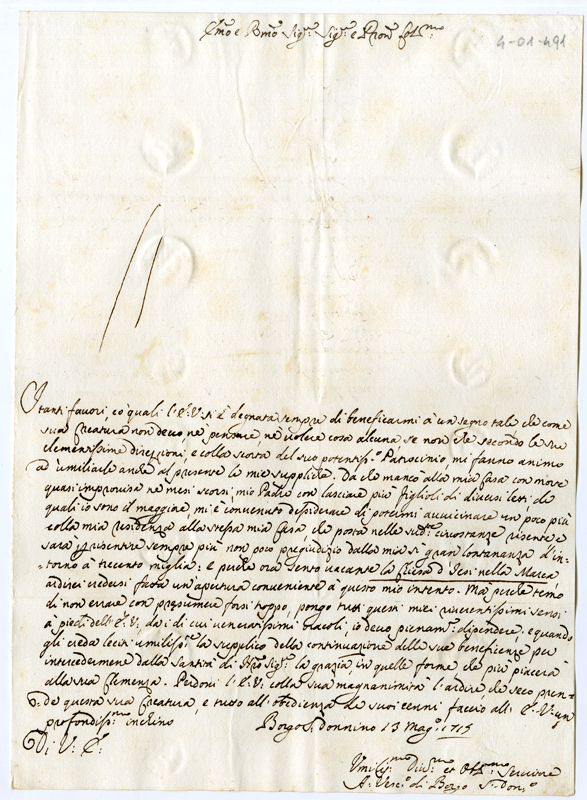 Emo e Rmo Sigr: Sigr: e Pron Colmo:
4-01-491
I tanti favori, có quali l'E: V: si è degnata sempre di beneficarmi à un segno tale, che come
sua Creatura non devo, nè pensare, nè volere cosa alcuna se non che secondo le sue
clementissime direzioni, e colla scorta del suo potentiss: Patrocinio, mi fanno animo
ad umiliarle anche al presente le mie suppliche. Da che mancò alla mia Casa con morte
quasi improvisa ne mesi scorsi mio Padre con lasciare più figlioli di diversi letti, de
quali io sono il maggiore, mi è convenuto desiderare di potermi avvicinare un poco più
colla mia residenza alla stessa mia Casa, che porta nelle sudte: circostanze risente e
sarà per risentire sempre più non poco pregiudizio dalla mia sì gran lontananza d'in-
torno à trecento miglia: e perche ora sento vacante la Chiesa d'Iesi nella Marca,
ardirei credersi fatta un'apertura conveniente à questo mio intento. Mà perche temo
di non errare con presumere forsi troppo, pongo tutti questi miei riverentissimi sensi
a piedi dell'E: V:, da i di cui veneratissimi Oracoli, io devo pienamte: dipendere, e quando
gli creda leciti umilissimte: la supplico della continuazione delle sue beneficenze per
intercedermene dalla Santità di Nro Sigre: la grazia in quelle forme che più piacerà
alla sua Clemenza. Perdoni l'E: V: colla sua magnanimità l'ardire che seco pren-
de questa sua Creatura, e tutto all'obedienza de suoi cenni faccio all'E: V: un
profondissmo inchino
Borgo S: Donnino 13 Mago: 1715
Di V: E:
Umilismo Divmo: et Obmo Servitore
A: Vesco: di Borgo S: Dono: